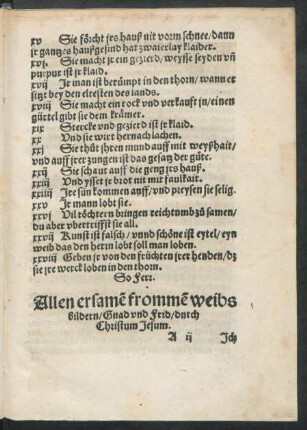 xv Sie förcht jrs hauß nit vorm schnee/dann
jr gantzes haußgesind hat zwaierlay klaider.
xvj. Sie macht jr ein gezierd/weysse seyden vñ
purpur ist jr klaid.
xvij Jr man ist berümpt in den thorn/wann er
sitzt bey den eltesten des lands.
xviij Sie macht ein rock vnd verkaufft jn/einen
gürtel gibt sie dem krämer.
xix Stercke vnd gezierd ist jr klaid.
xx Vnd sie wirt hernach lachen.
xxj Sie thůt jhren mund auff mit weyßhait/
vnd auff jrer zungen ist das gesatz der güte.
xxij Sie schaut auff die geng jrs hauß.
xxiij Vnd ysset jr brot nit mit faulkait.
xxiiij Jre sün kommen auff/vnd preysen sie selig.
xxv Jr mann lobt sie.
xxvj Vil töchtern bringen reichtumb zů samen/
du aber vbertriffst sie all.
xxvij Kunst ist falsch/vnnd schöne ist eytel/eyn
weib das den herrn lobt soll man loben.
xxviij Geben jr von den früchten jrer henden/dz
sie jre werck loben in den thorn.
So Ferr.
Allen ersamẽ frommẽ weibs
bildern/Gnad vnd Frid/durch
Christum Jesum.
A ij Jch